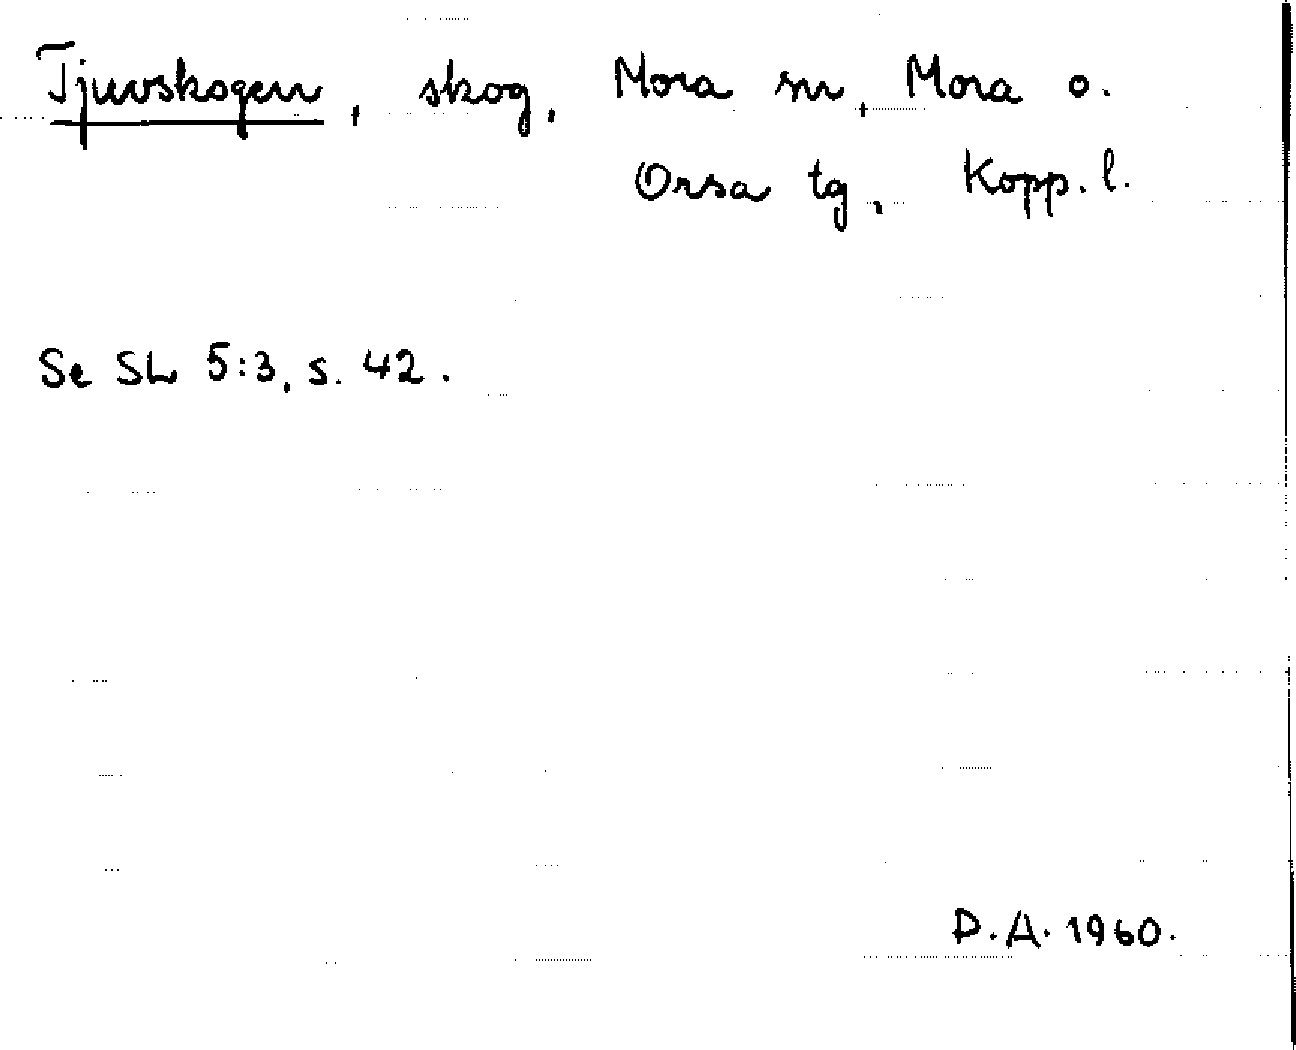 Tjuvskogen, skog, Mora sn, Mora o.
Orsa tg, Kopp. l.
Se SL 5:3, s. 42.
D.A. 1960.